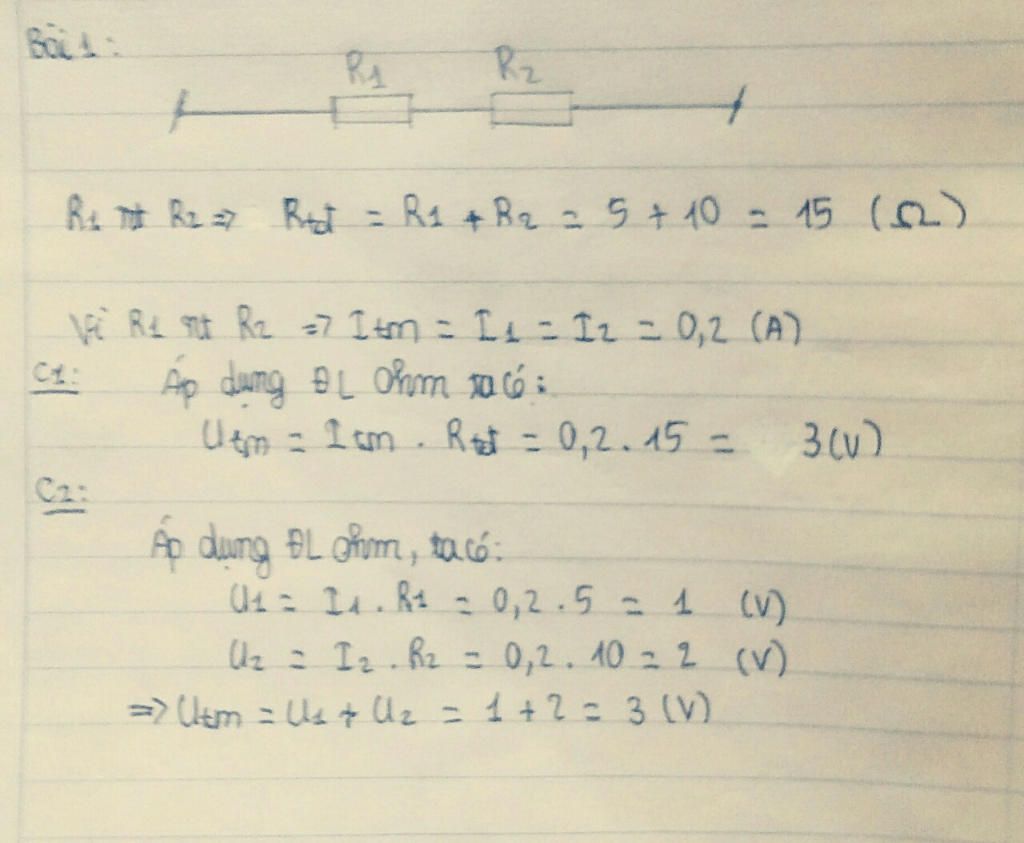 Bài 1:
R1 R2
R1 nt R2 => Rtđ = R1 + R2 = 5 + 10 = 15 (Ω)
Vì R1 nt R2 => Itm = I1 = I2 = 0,2 (A)
C1: Áp dụng ĐL Ohm ta có:
Utm = Itm . Rtđ = 0,2 . 15 = 3(V)
C2:
Áp dụng ĐL Ohm, ta có:
U1 = I1 . R1 = 0,2 . 5 = 1 (V)
U2 = I2 . R2 = 0,2 . 10 = 2 (V)
=> Utm = U1 + U2 = 1 + 2 = 3 (V)